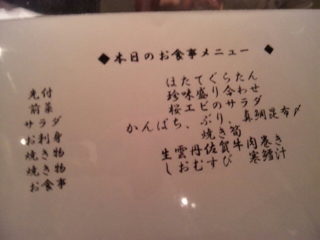 ◆本日のお食事メニュー◆
先付 ほたてぐらたん
前菜 珍味盛り合わせ
サラダ 桜エビのサラダ
お刺身 かんぱち、ぶり、真鯛昆布〆
焼き物 焼き筍
焼き物 生雲丹佐賀牛肉巻き
お食事 しおむすび 寒鱈汁